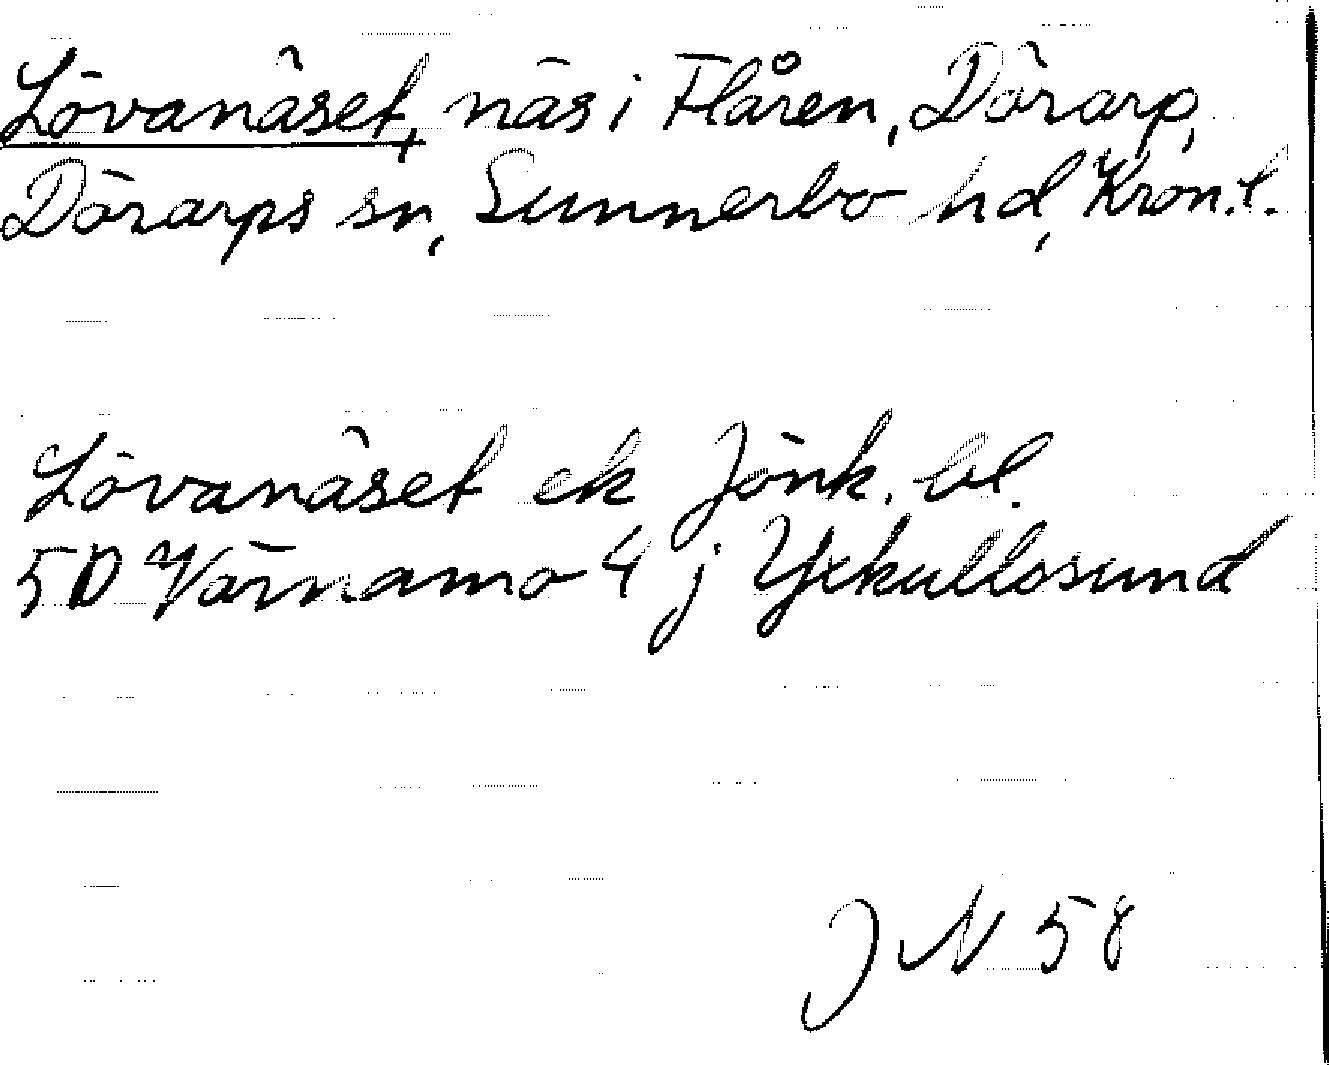 Lövanäset, näs i Flåren, Dörarp,
Dörarps sn, Sunnerbo hd, Kron.l.
Lövanäset ek Jönk. bl.
5D Värnamo 4 j Yxkullssund
JN 58